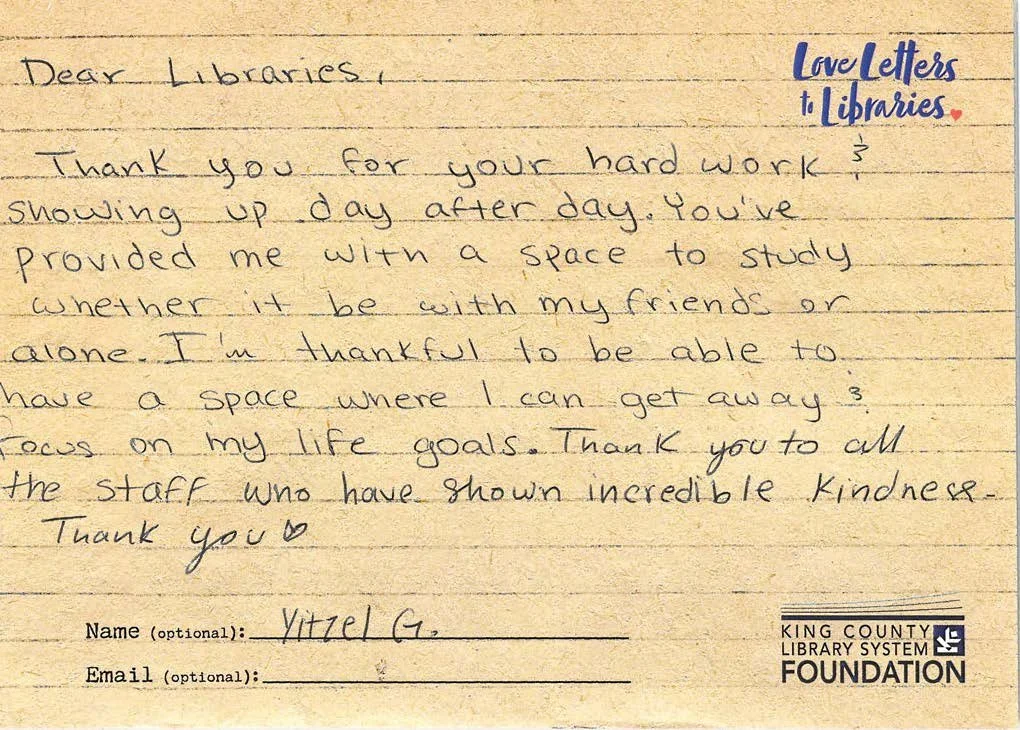 Dear Libraries,
Love Letters
to Libraries
Thank you for your hard work &
showing up day after day. You've
provided me with a space to study
whether it be with my friends or
alone. I'm thankful to be able to
have a space where I can get away &
focus on my life goals. Thank you to all
the staff who have shown incredible kindness-
Thank you ♡
Name (optional): Yitzel G.
Email (optional):
KING COUNTY
LIBRARY SYSTEM
FOUNDATION